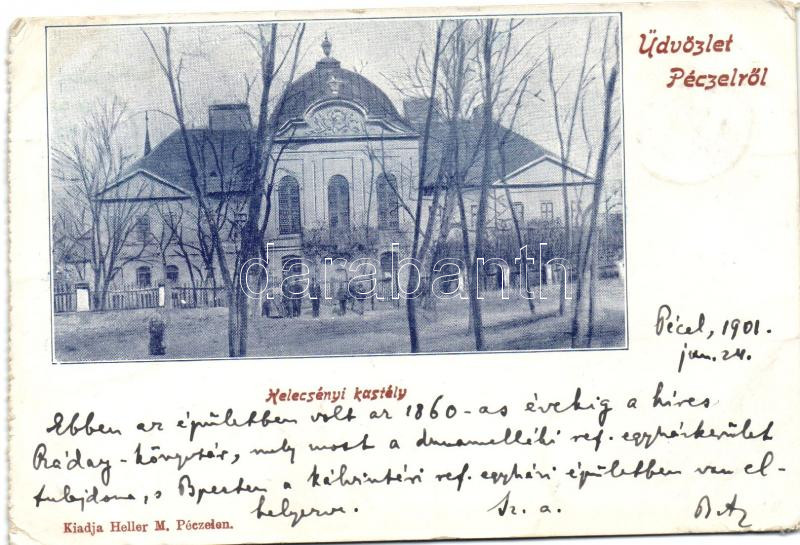 Üdvözlet
Péczelről
darabanth
Pécel, 1901.
jan. 24.
Kelecsényi kastély
Ebben az épületben volt az 1860-as évekig a híres
Ráday-könyvtár, mely most a dunamelléki ref. egyházkerület
tulajdona, s Bpesten a kálvintéri ref. egyházi épületben van el-
helyezve. Sz. a.
Kiadja Heller M. Péczelen.